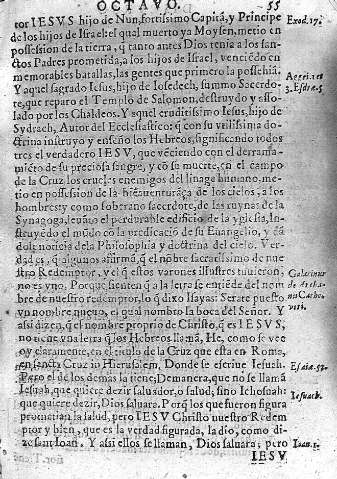 OCTAVO. 55
tor IESVS hijo de Nun, fortissimo Capitã, y Principe
de los hijos de Israel: el qual muerto ya Moysen, metio en
possession de la tierra, q̃ tanto antes Dios tenia a los san-
ctos Padres prometida, a los hijos de Israel, venciẽdo en
memorables batallas, las gentes que primero la possehiã.
Y aquel sagrado Iesus, hijo de Iosedech, summo Sacerdo-
te, que reparo el Templo de Salomon, destruydo y asso-
lado por los Chaldeos. Y aquel eruditissimo Iesus, hijo de
Sydrach, Autor del Ecclesiastico: q̃ con su vtilissima do-
ctrina instruyo y enseño los Hebreos, significando todos
tres el verdadero IESV, que vẽciendo con el derrama-
miẽto de su preciosa sangre, y cõ su muerte, en el campo
de la Cruz los crueles enemigos del linage humano, me-
tio en possession de la biẽauenturãça de los cielos, a los
hombres: y como soberano sacerdote, de las ruynas de la
Synagoga, leuãto el perdurable edificio de la yglesia, In-
struyẽdo el mũdo cõ la predicaciõ de su Euangelio, y dã
dole noticia dela Philosophia y doctrina del cielo. Ver-
dad es, q̃ algunos affirmã, q̃ el nõbre sacratissimo de nue
stro Redemptor, y el q̃ estos varones illustres tuuieron,
no es vno. Porque sienten q̃ a la letra se entiẽde del nom
bre de nuestro redemptor, lo q̃ dixo Isayas: Serate puesto
vn nombre nueuo, el qual nombro la boca del Señor. Y
assi dizen, q̃ el nombre proprio de Christo, q̃ es IESVS,
no tiene vna letra q̃ los Hebreos llamã, He, como se vee
oy claramente, en el titulo de la Cruz que esta en Roma,
en sancta Cruz in Hierusalem, Donde se escriue Iesuah.
Pero el de los demas la tiene; Demanera, que no se llamã
Iesuah, que quiere dezir saluador, o salud, sino Iehosuah:
que quiere dezir, Dios saluara. Porq̃ los que fueron figura
prometian la salud, pero IESV Christo nuestro Redem
ptor y bien, que es la verdad figurada, la dio, como di-
ze sant Ioan. Y assi ellos se llaman, Dios saluara; pero
IESV
Exod. 17.
3. Esdræ. 5
Galatinus
Esaiæ.
Iesuah.
Ioan. 1.